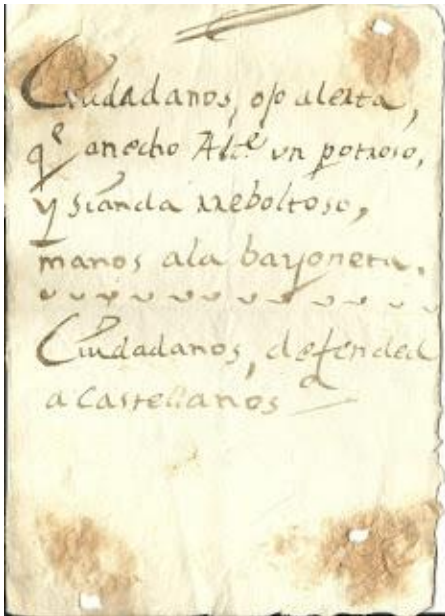 Ciudadanos, ojo alerta,
q.e an echo Alc.e un potroso,
y si anda rreboltoso,
manos ala bayoneta.
Ciudadanos, defended
a Castellanos